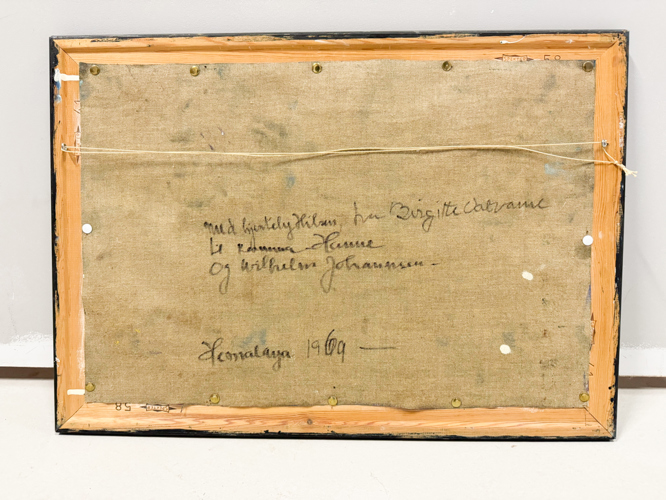 Med hjertelig Hilsen fra Birgitte
til Hanne
Og Wilhelm Johannsen -
Hemalaya 1969 —
58
58